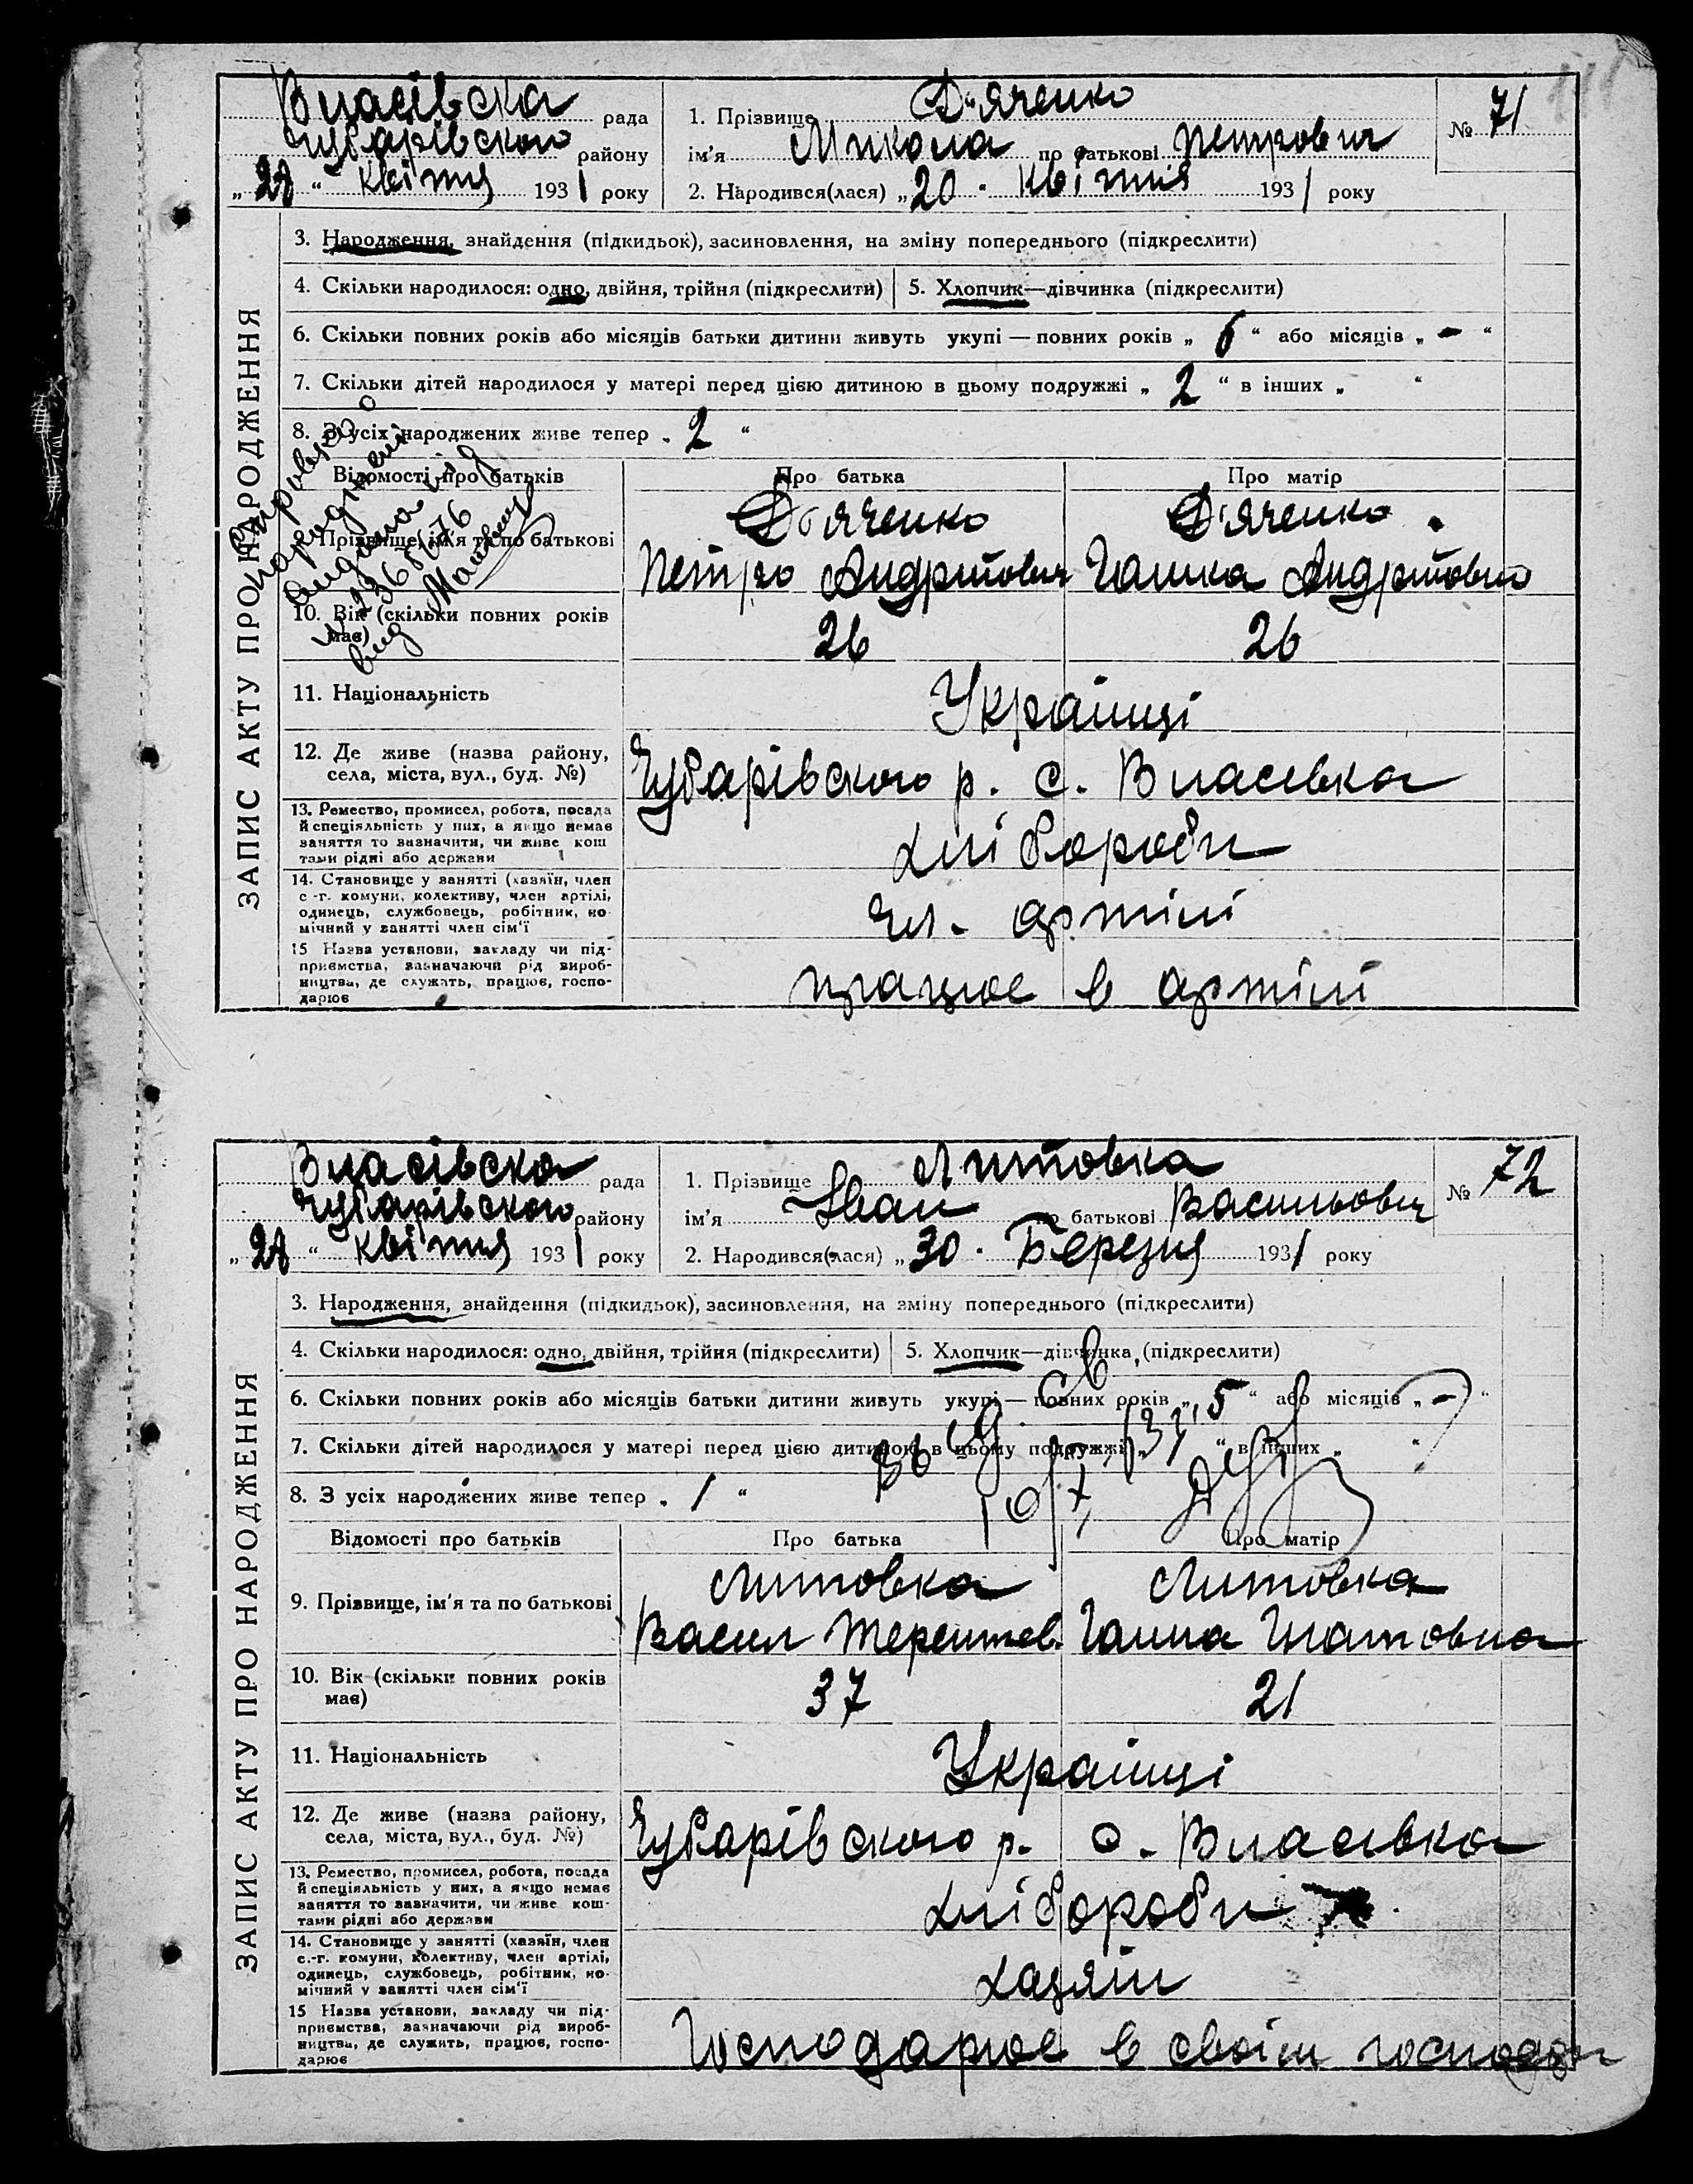 Власівска рада
Чубарівского району
„28“ квітня 1931 року
1. Прізвище Д'яченко
ім'я Микола по батькові Петрович
2. Народився(лася) „20“ квітня 1931 року
№ 71
ЗАПИС АКТУ ПРО НАРОДЖЕННЯ
3. Народження, знайдення (підкидьок), засиновлення, на зміну попереднього (підкреслити)
4. Скільки народилося: одно, двійня, трійня (підкреслити)
5. Хлопчик—дівчинка (підкреслити)
6. Скільки повних років або місяців батьки дитини живуть укупі — повних років „6“ або місяців „-“
7. Скільки дітей народилося у матері перед цією дитиною в цьому подружжі „2“ в інших „ “
8. З усіх народжених живе тепер „2“
Відомості про батьків
Про батька
Про матір
9. Прізвище, ім'я та по батькові
Д'яченко
Петро Андрійович
Д'яченко
Ганна Андріївна
10. Вік (скільки повних років має)
26
26
11. Національність
Українці
12. Де живе (назва району,
села, міста, вул., буд. №)
Чубарівского р. с. Власівка
13. Ремество, промисел, робота, посада
й спеціяльність у них, а якщо немає
заняття то зазначити, чи живе кош
тами рідні або держави
хлібороби
14. Становище у занятті (хазяїн, член
с.-г. комуни, колективу, член артілі,
одинець, службовець, робітник, по-
мічний у занятті член сім'ї
чл. артілі
15 Назва установи, закладу чи під-
приємства, зазначаючи рід вироб-
ництва, де служать, працює, госпо-
дарює
працює в артілі
Власівска рада
Чубарівского району
„28“ квітня 1931 року
1. Прізвище Литовка
ім'я Іван по батькові Васильович
2. Народився(лася) „30“ Березня 1931 року
№ 72
ЗАПИС АКТУ ПРО НАРОДЖЕННЯ
3. Народження, знайдення (підкидьок), засиновлення, на зміну попереднього (підкреслити)
4. Скільки народилося: одно, двійня, трійня (підкреслити)
5. Хлопчик—дівчинка (підкреслити)
6. Скільки повних років або місяців батьки дитини живуть укупі — повних років „5“ або місяців „-“
7. Скільки дітей народилося у матері перед цією дитиною в цьому подружжі „ “ в інших „ “
8. З усіх народжених живе тепер „1“
Відомості про батьків
Про батька
Про матір
9. Прізвище, ім'я та по батькові
Литовка
Васил Терентєв.
Литовка
Ганна Гнатовна
10. Вік (скільки повних років
має)
37
21
11. Національність
Українці
12. Де живе (назва району,
села, міста, вул., буд. №)
Чубарівского р. с. Власівка
13. Ремество, промисел, робота, посада
й спеціяльність у них, а якщо немає
заняття то зазначити, чи живе кош-
тами рідні або держави
хлібороби
14. Становище у занятті (хазяїн, член
с.-г. комуни, колективу, член артілі,
одинець, службовець, робітник, по-
мічний у занятті член сім'ї
хазяїн
15 Назва установи, закладу чи під-
приємства, зазначаючи рід вироб-
ництва, де служить, працює, госпо-
дарює
Господарює в своїм господар